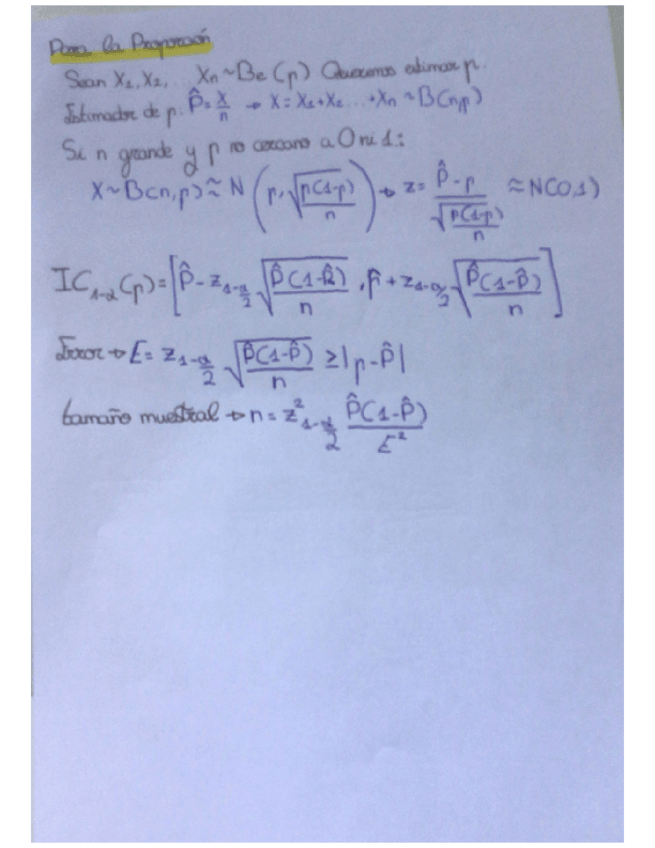 Para la Proporción
Sean X₁, X₂, ... Xn ~ Be (p) Queremos estimar p.
Estimador de p. P̂ = X/n → X = X₁+X₂ ... +Xn ~ B(n,p)
Si n grande y p no cercano a 0 ni 1:
X ~ B(n,p) ≈ N (p, √(p(1-p)/n)) → z = (P̂-p)/√(p(1-p)/n) ≈ N(0,1)
IC₁₋α(p) = [P̂ - z₁₋α/₂ √(P̂(1-P̂)/n), P̂ + z₁₋α/₂ √(P̂(1-P̂)/n)]
Error → E = z₁₋α/₂ √(P̂(1-P̂)/n) ≥ |p-P̂|
tamaño muestral → n = z²₁₋α/₂ P̂(1-P̂)/E²